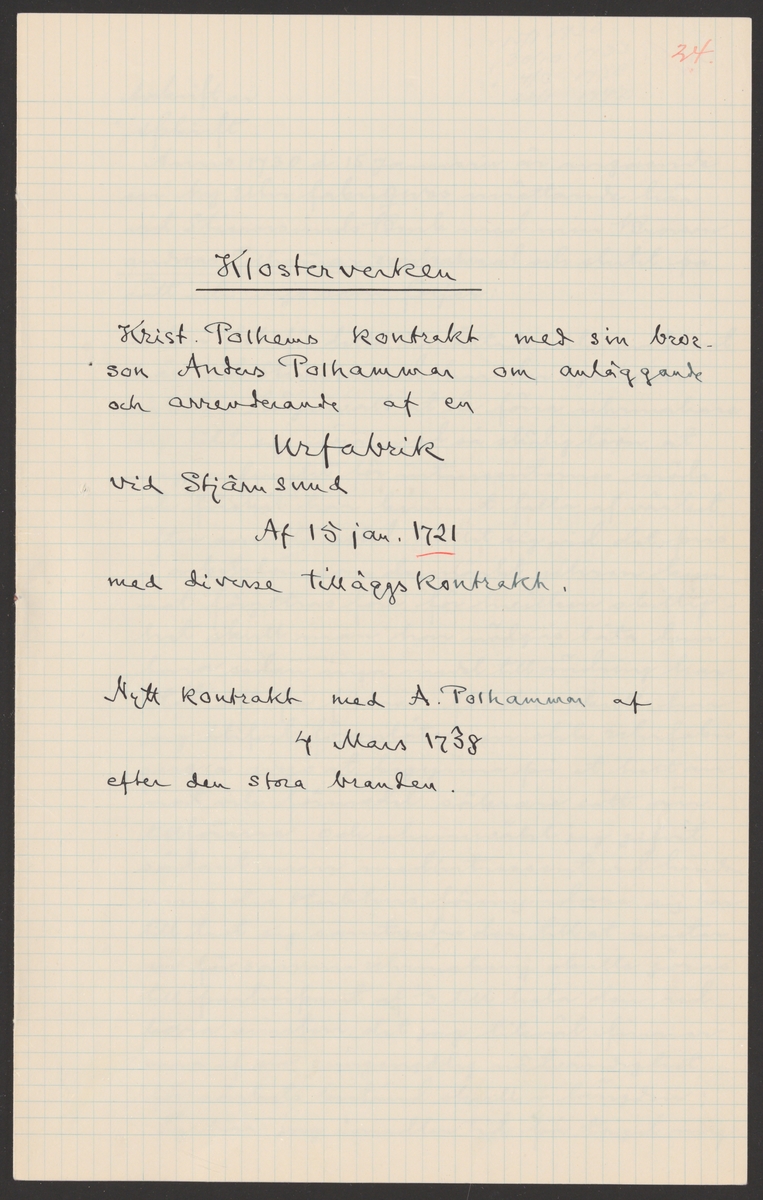 24.
Klosterverken
Krist. Polhems kontrakt med sin bror-
son Anders Polhammar om anläggande
och arrenderande af en
Urfabrik
vid Stjärnsund
Af 15 jan. 1721
med diverse tilläggskontrakt.
Nytt kontrakt med A. Polhammar af
4 Mars 1738
efter den stora branden.